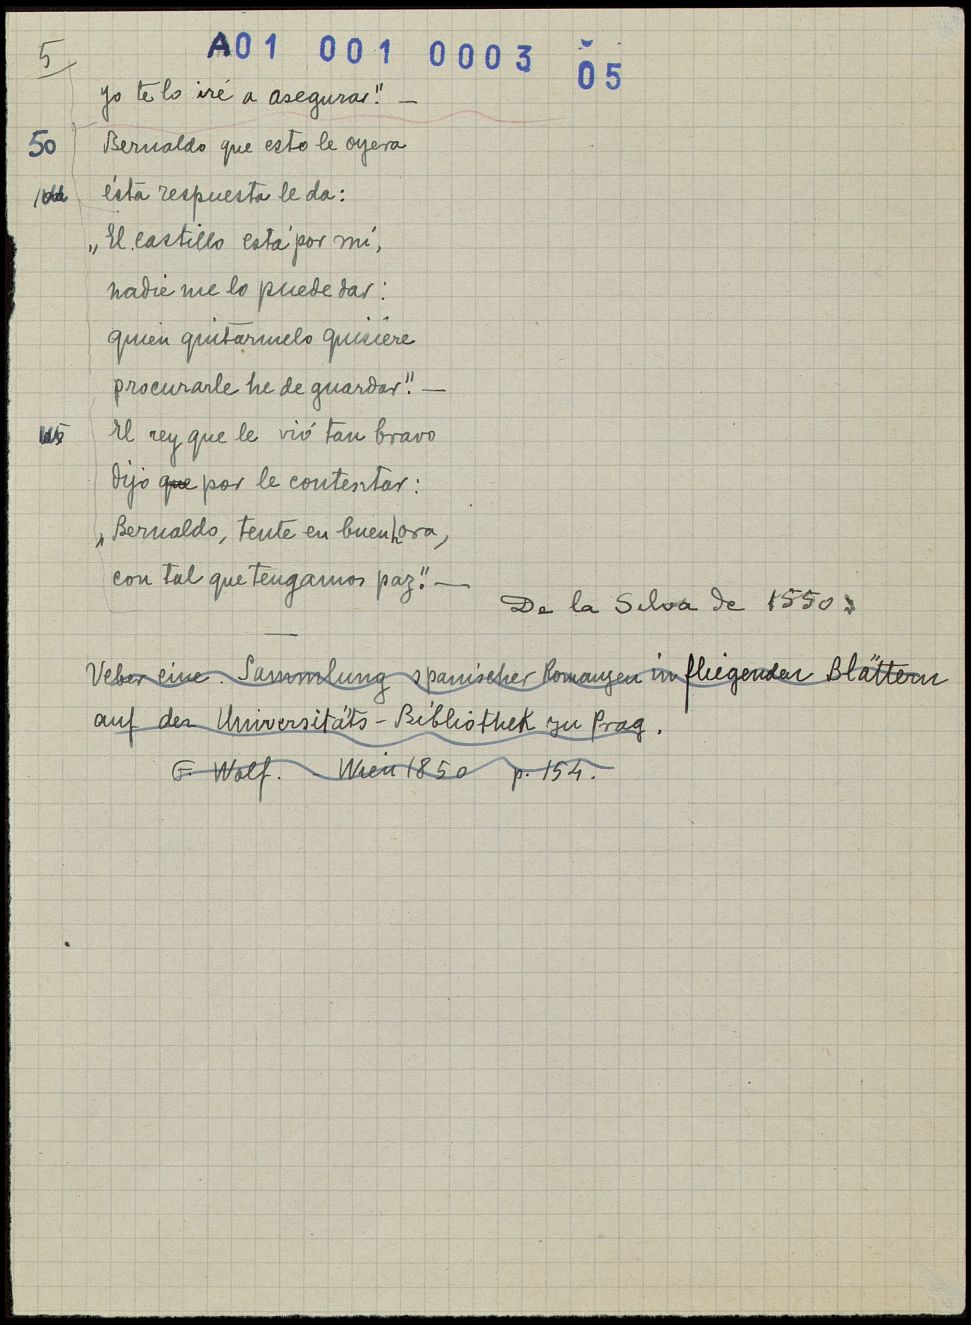 5
A01 001 0003 05
yo te lo iré a asegurar." —
50 Bernaldo que esto le oyera
ésta respuesta le da:
„El castillo está por mí,
nadie me lo puede dar:
quien quitarmelo quisiére
procurarle he de guardar." —
El rey que le vió tan bravo
dijo que por le contestar:
„Bernaldo, tente en buen hora,
con tal que tengamos paz." —
De la Silva de 1550.
Ueber eine Sammlung spanischer Romanzen in fliegenden Blättern
auf der Universitäts-Bibliothek zu Prag.
F. Wolf. - Wien 1850 p. 154.